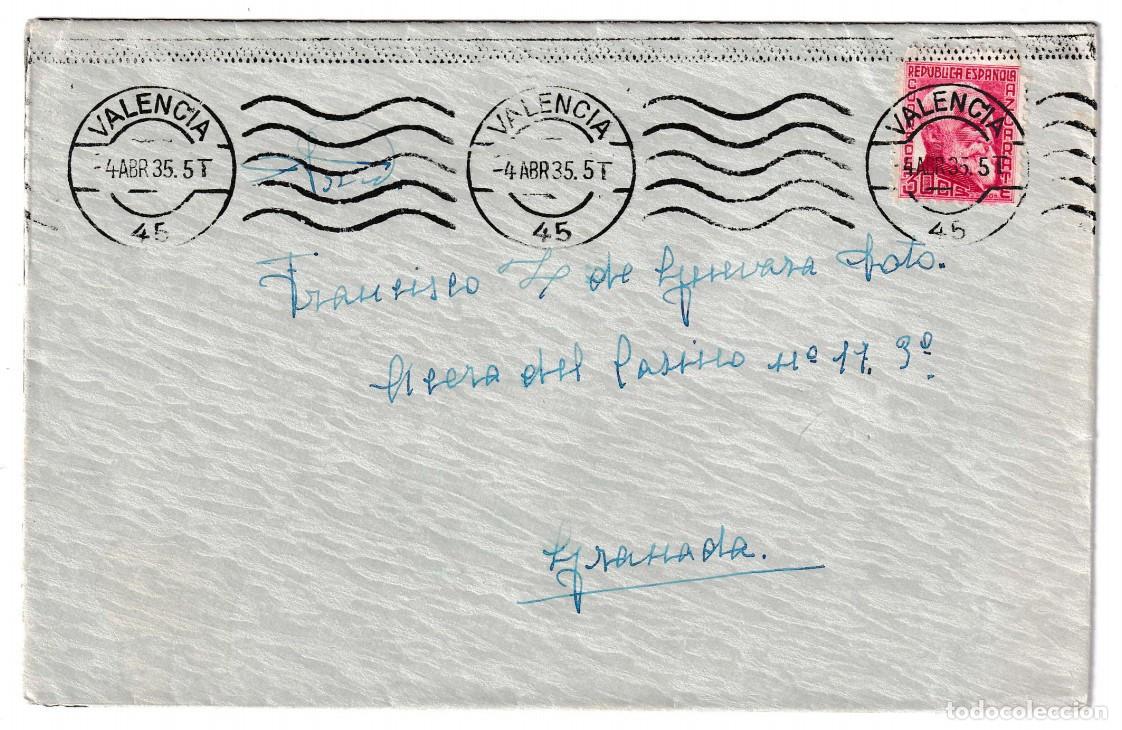 REPUBLICA ESPAÑOLA
VALENCIA VALENCIA VALENCIA
-4 ABR 35. 5T -4 ABR 35. 5T 4 ABR 35. 5T
30
45 45 45
Francisco L. de Guevara Soto.
Acera del Casino nº 17. 3º
Granada.
todocoleccion